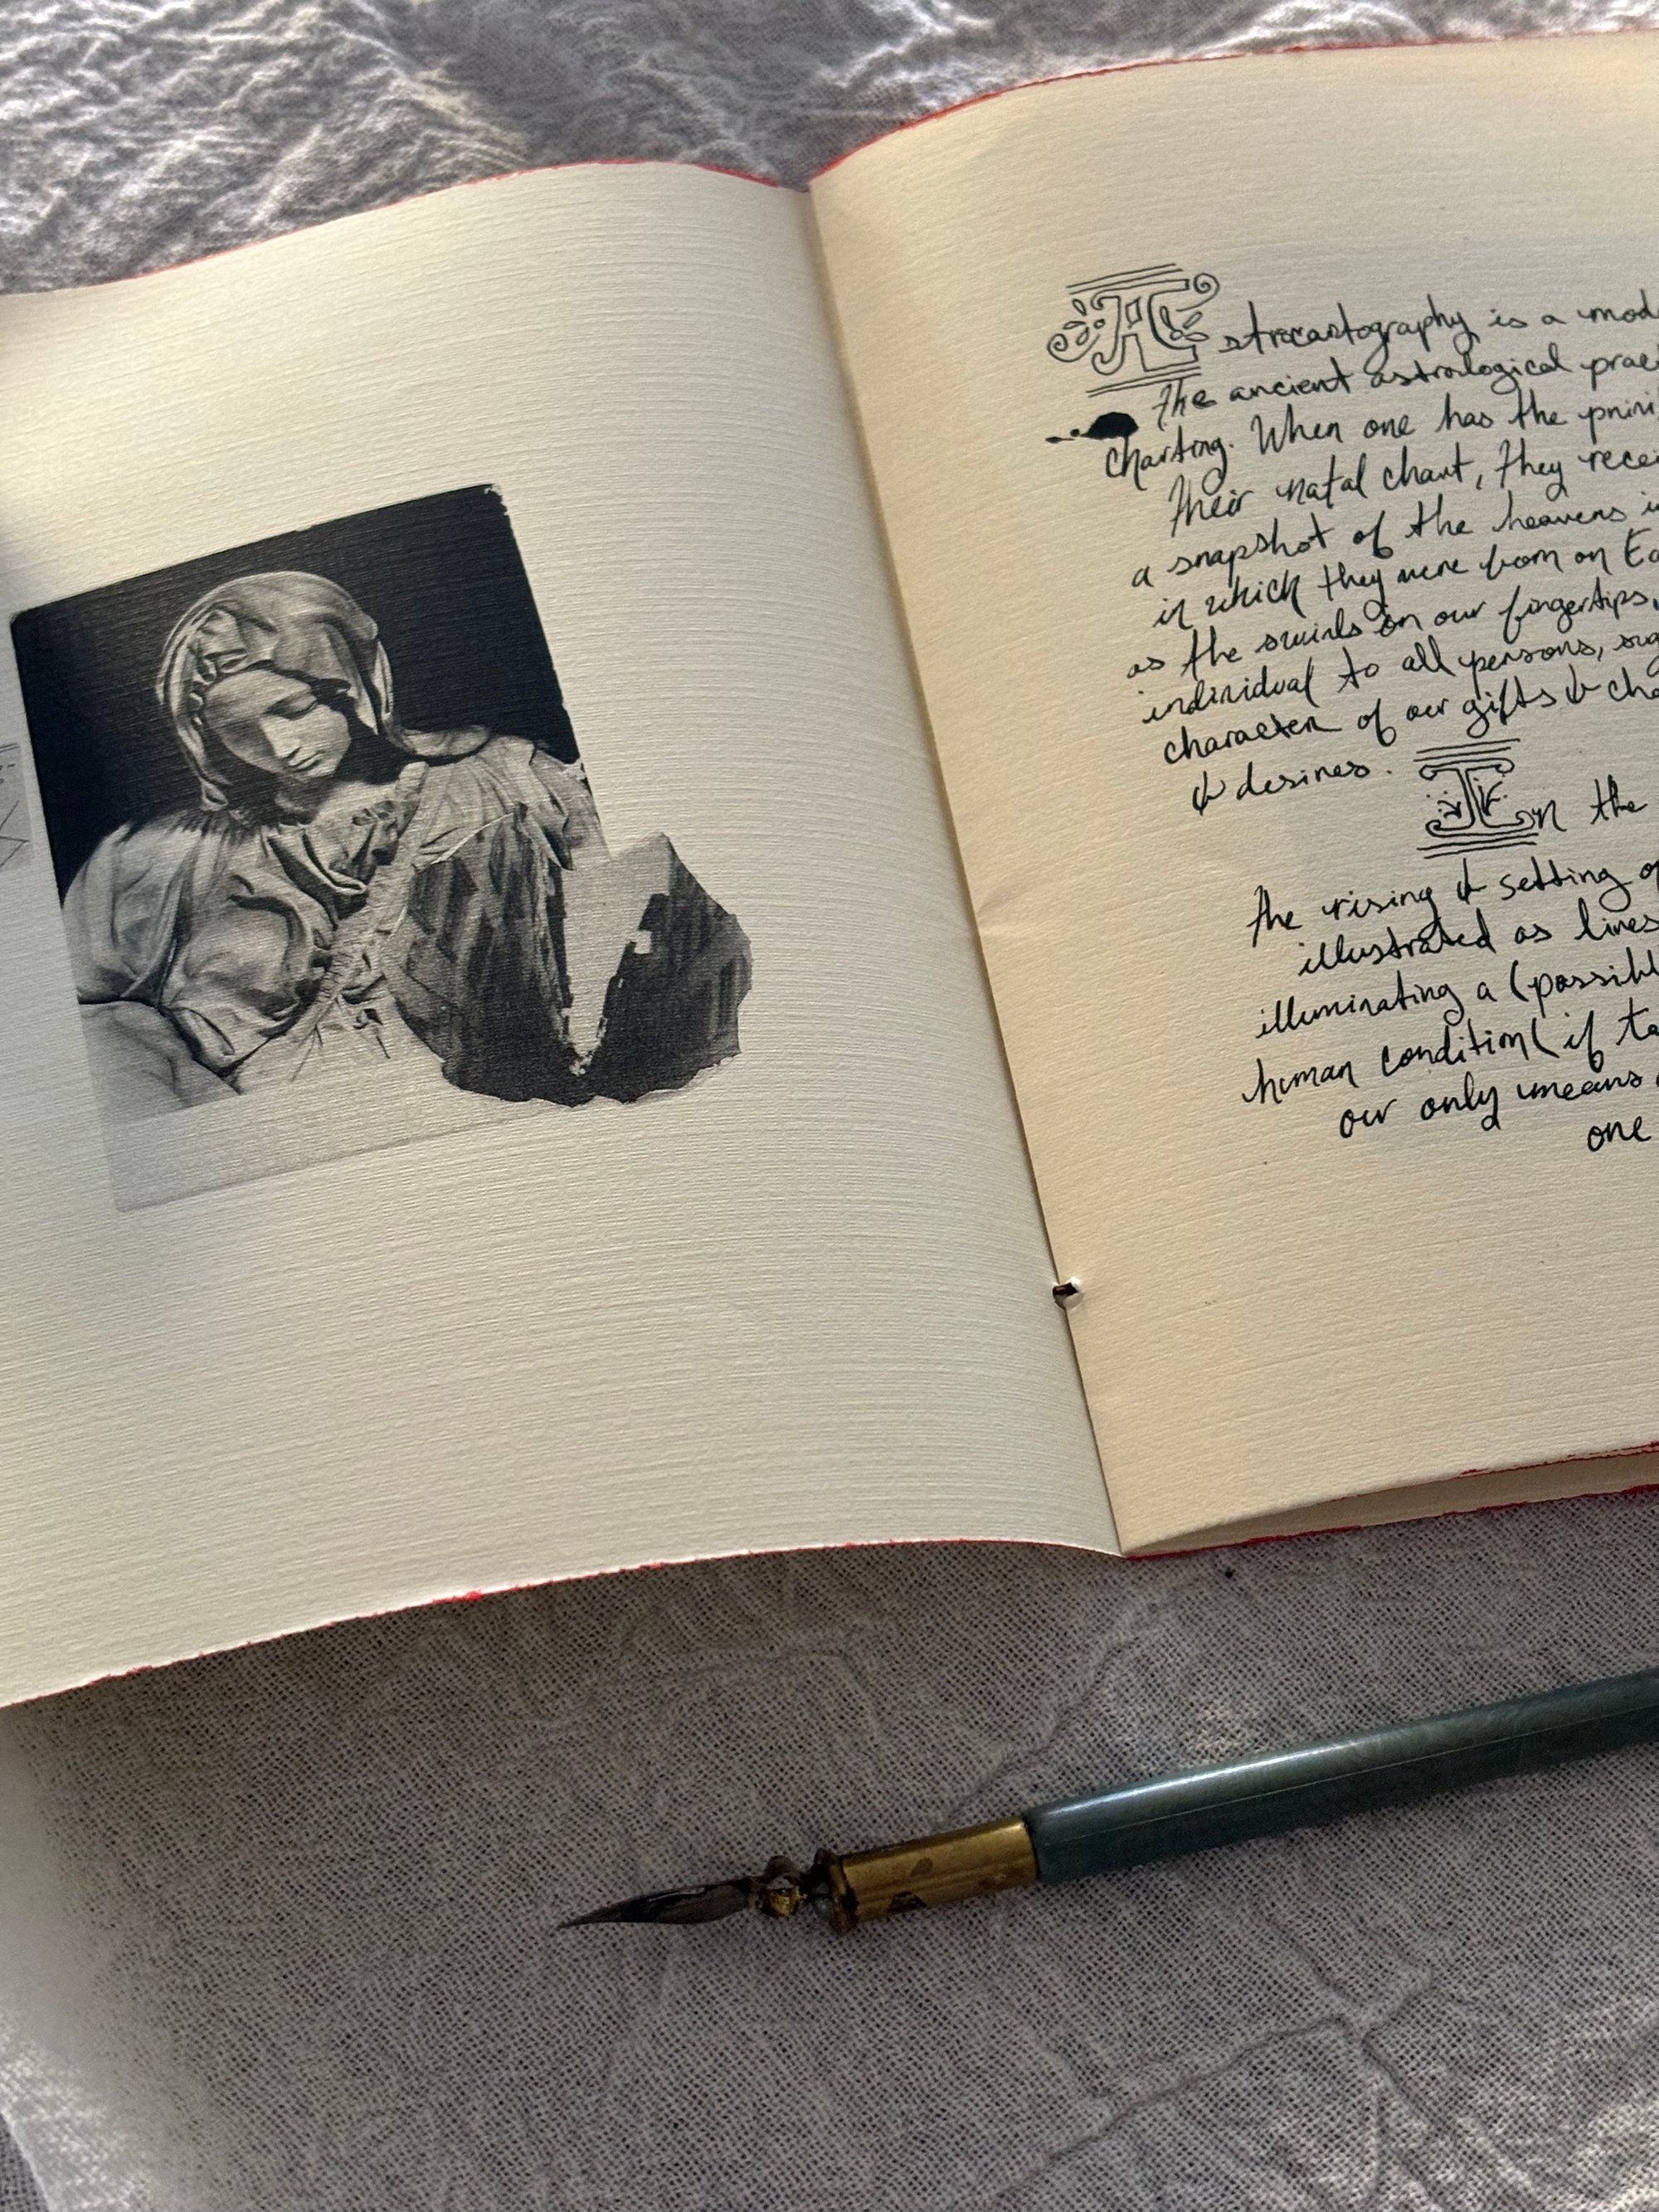 Astrocartography is a mod
the ancient astrological prac
charting. When one has the privi
their natal chart, they recei
a snapshot of the heavens i
in which they were born on Ea
as the swirls on our fingertips,
individual to all persons, sug
character of our gifts & cha
& desires. In the
the rising & setting of
illustrated as lines
illuminating a (possibl
human condition (if ta
our only means
one